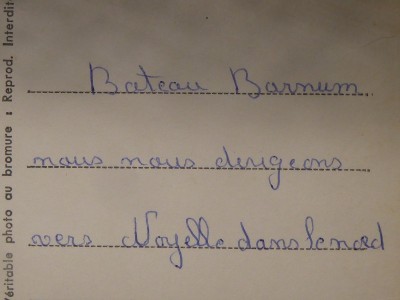 Bateau Barnum
nous nous dirigeons
vers Noyelle dans le nord
Véritable photo au bromure : Reprod. Interdit